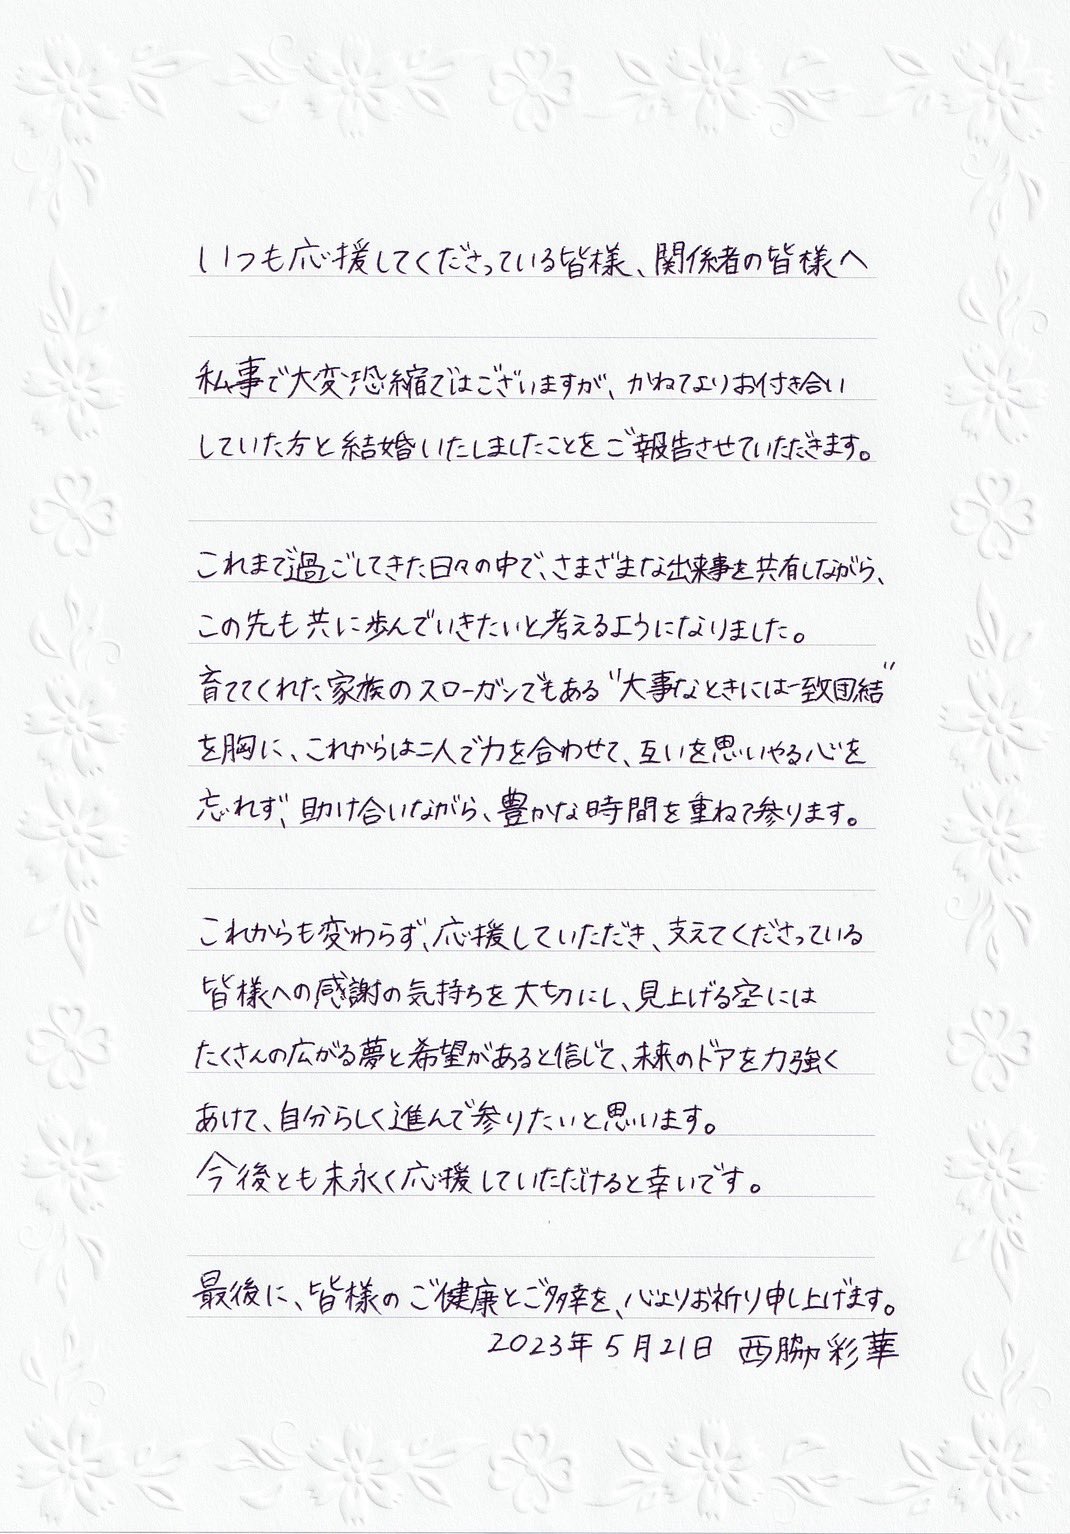 いつも応援してくださっている皆様、関係者の皆様へ
私事で大変恐縮ではございますが、かねてよりお付き合い
していた方と結婚いたしましたことをご報告させていただきます。
これまで過ごしてきた日々の中で、さまざまな出来事を共有しながら、
この先も共に歩んでいきたいと考えるようになりました。
育ててくれた家族のスローガンでもある"大事なときには一致団結"
を胸に、これからは二人で力を合わせて、互いを思いやる心を
忘れず、助け合いながら、豊かな時間を重ねて参ります。
これからも変わらず、応援していただき、支えてくださっている
皆様への感謝の気持ちを大切にし、見上げる空には
たくさんの広がる夢と希望があると信じて、未来のドアを力強く
あけて、自分らしく進んで参りたいと思います。
今後とも末永く応援していただけると幸いです。
最後に、皆様のご健康とご多幸を、心よりお祈り申し上げます。
2023年5月21日 西脇彩華